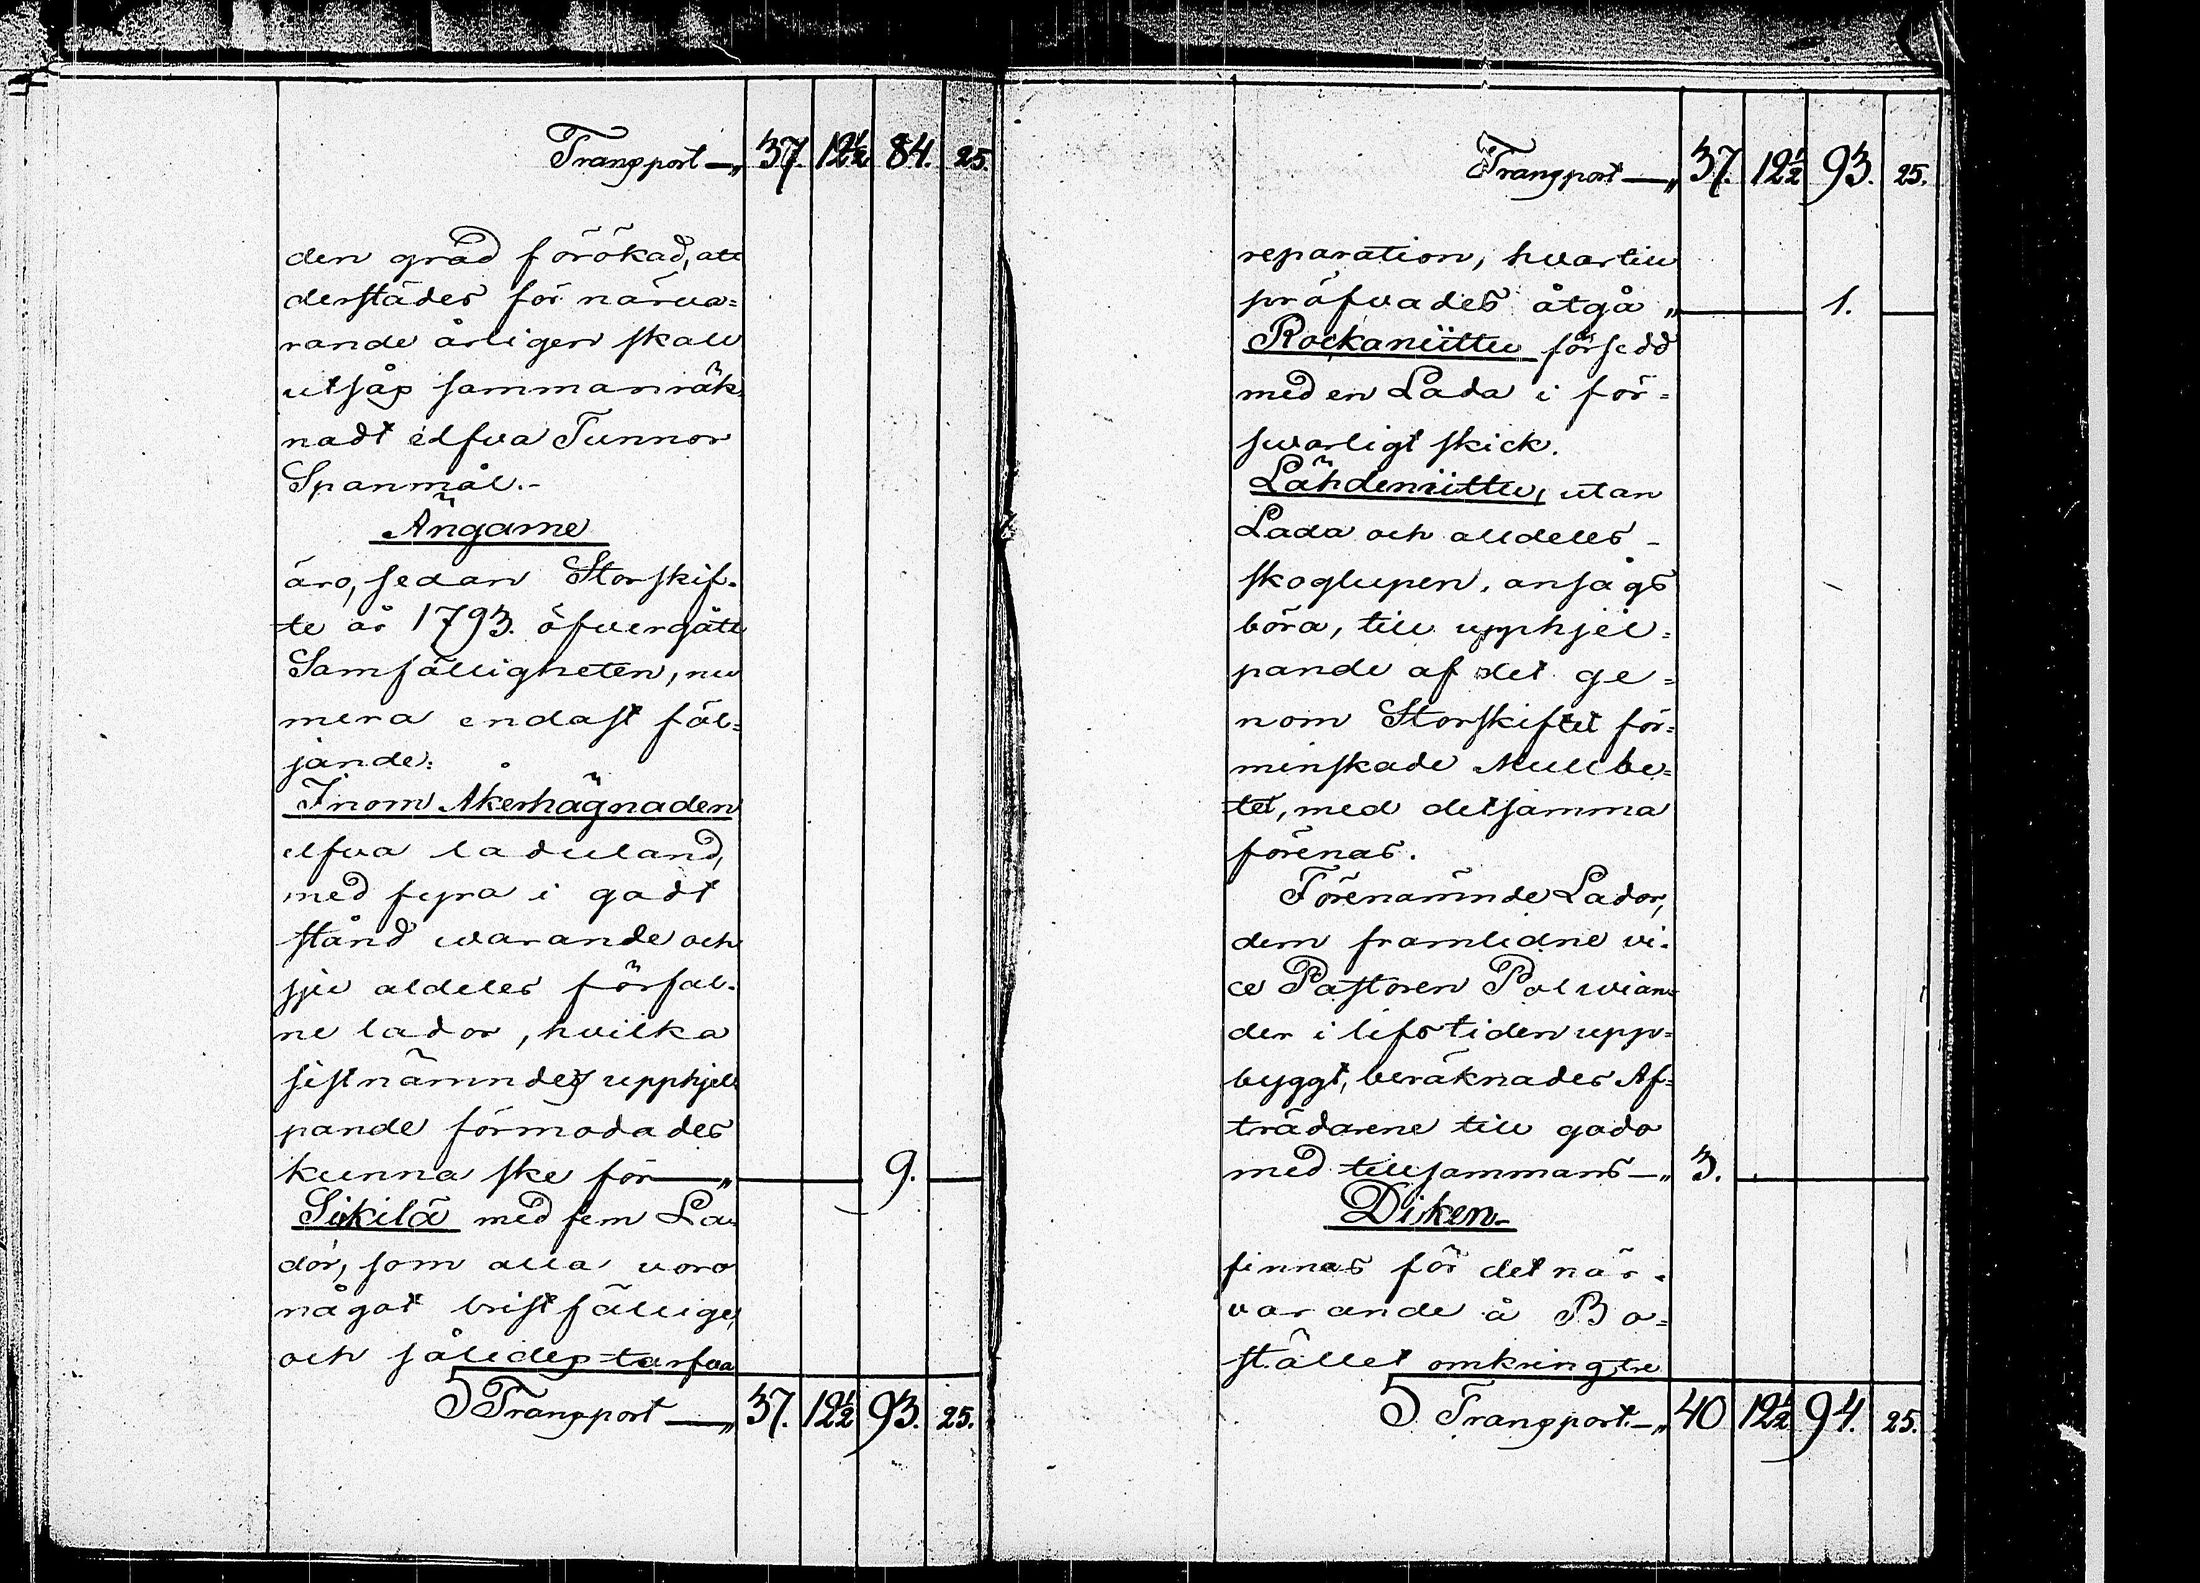 Transport —„ 37. 12½ 84. 25.
den grad förökad, att
derstädes för närva=
rande årligen skall
utsås sammanräk=
nadt elfva Tunnor
Spanmål.-
Ängarne
äro, sedan Storskif-
te år 1793. öfvergått
Samfälligheten, nu
mera endast föl=
jande:
Inom Åkerhägnaden
elfva laduland,
med fyra i godt
stånd warande och
sju aldeles förfal-
ne lador, hvilka
sistnämndes upphjel
pande förmodades
kunna ske för —„ 9.
Siikilä med fem La-
dor, som alla voro
något bristfällige,
och således tarfva
Transport —„ 37. 12½ 93. 25.
Transport —„ 37. 12½ 93. 25.
reparation, hvartill
pröfvades åtgå „ 1.
Rockaniittu försedd
med en Lada i för=
svarligt skick.
Lähdeniittu, utan
Lada och alldeles -
skoglupen, ansågs
böra, till upphjel=
pande af det ge=
nom Storskiftet för=
minskade Mullbe=
tet, med detsamma
förenas.
Förenämnde Lador,
dem framlidne vi-
ce Pastoren Polvian-
der i lifstiden upp=
byggt, beräknades Af=
trädarene till godo
med tillsammans —„ 3.
Diken-
finnas för det när-
varande å Bo=
stället omkring tre
Transport. —„ 40 12½ 94. 25.